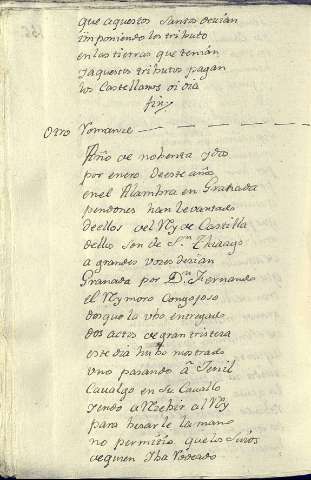 que aquestos Santos decian
imponiendoles tributo
en las tierras que tenian
y aquestos tributos pagan
los Castellanos oi dia
fin
Otro Romance
Año de nobenta y dos
por enero de este año
en el Alambra en Granada
pendones han levantado
dellos del Rey de Castilla
dellos son de Sn. Thiago
a grandes voces decian
Granada por Dn. Fernando
el Rey moro congojoso
des que la vbo entregado
dos actos de gran tristeza
este dia hubo mostrado
vno pasando a Jenil
Caualgo en su Cauallo
yendo a Recibir al Rey
para besarle la mano
no permitio que los suios
de quien iba rodeado